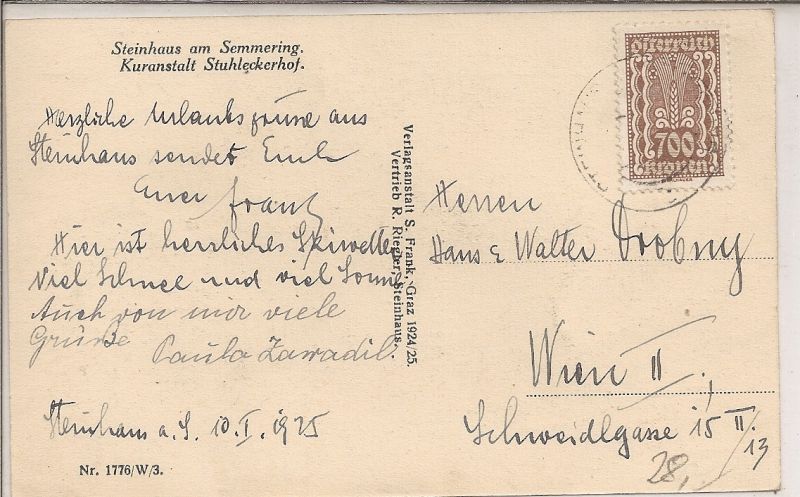 Steinhaus am Semmering.
Kuranstalt Stuhleckerhof.
Herzliche Urlaubsgrüsse aus
Steinhaus sendet Euch
Euer Franz
Hier ist herrliches Skiwetter
Viel Schnee und viel Sonne
Auch von mir viele
Grüße Paula Zawadil.
Steinhaus a. S. 10. I. 1925
Nr. 1776/W/3.
Verlagsanstalt S. Frank, Graz 1924/25.
Vertrieb R. Riegler, Steinhaus.
Österreich
700
Kronen
Herren
Hans & Walter Drobny
Wien II.,
Schweidlgasse 15 II/13
28,